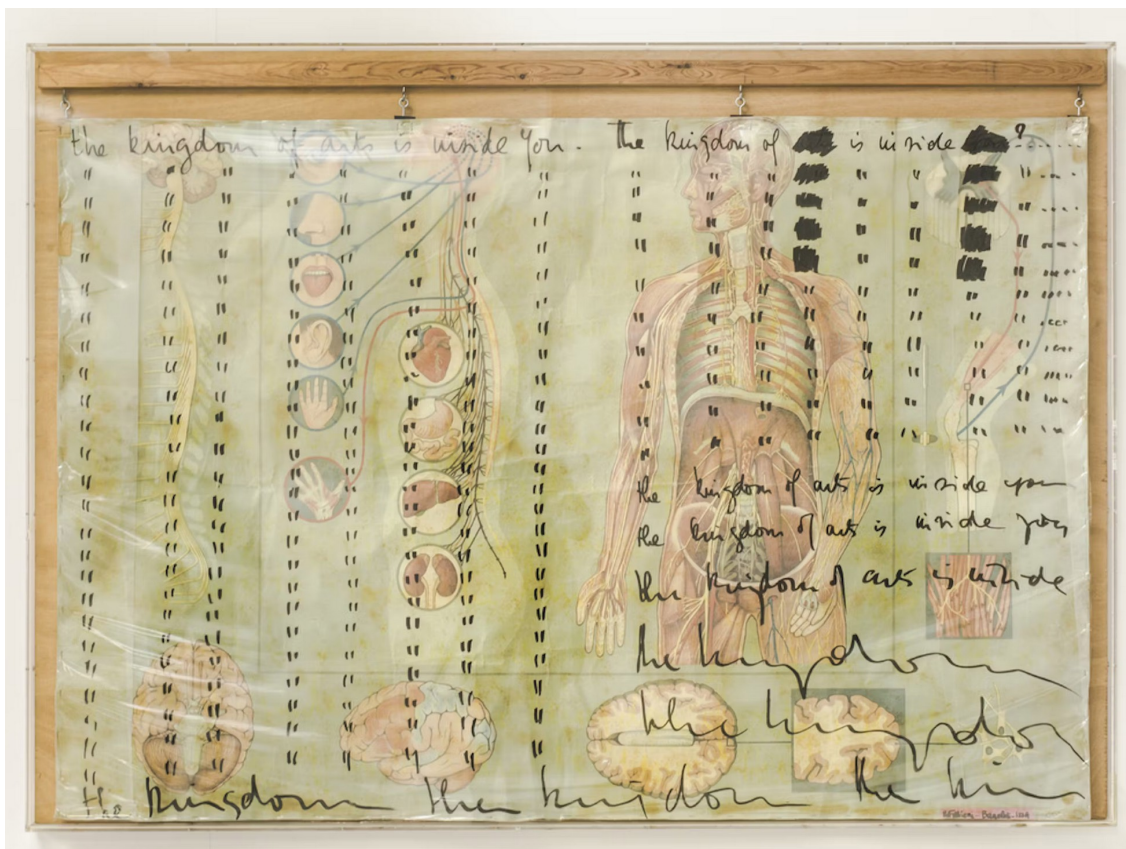 the kingdom of arts is inside you. The kingdom of is inside ? ......
the kingdom of arts is inside you
the kingdom of arts is inside you
the kingdom of arts is inside
the kingdom
the kingdom
th kingdom the kingdom the kin